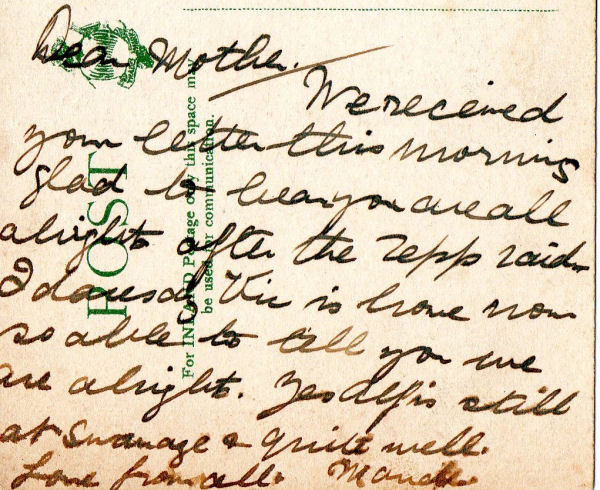 Dear Mother.
We received
your letter this morning
glad to hear you are all
alright after the Zepp raid
I daresay Vic is home now
so able to tell you we
are alright. Yes Alf is still
at Swanage & quite well.
Love from all. Maude.
POST
For INLAND Postage only this space may
be used for communication.